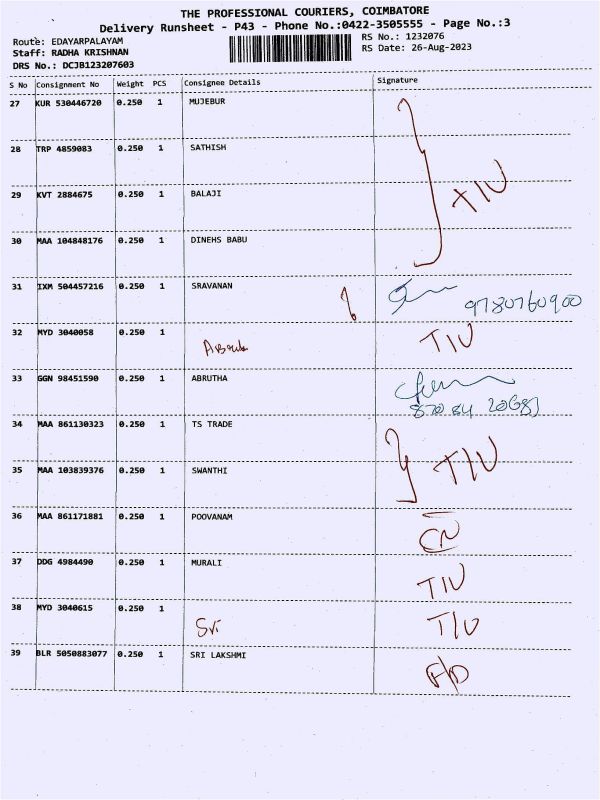 THE PROFESSIONAL COURIERS, COIMBATORE
Delivery Runsheet - P43 - Phone No.:0422-3505555 - Page No.:3
Route: EDAYARPALAYAM
Staff: RADHA KRISHNAN
DRS No.: DCJB123207603
RS No.: 1232076
RS Date: 26-Aug-2023
S No Consignment No Weight PCS Consignee Details Signature
27 KUR 530446720 0.250 1 MUJEBUR
28 TRP 4859083 0.250 1 SATHISH
TIU
29 KVT 2884675 0.250 1 BALAJI
30 MAA 104848176 0.250 1 DINEHS BABU
31 IXM 504457216 0.250 1 SRAVANAN
9780760900
32 MYD 3040058 0.250 1 TIU
33 GGN 98451590 0.250 1 ABRUTHA
34 MAA 861130323 0.250 1 TS TRADE
TIU
35 MAA 103839376 0.250 1 SWANTHI
36 MAA 861171881 0.250 1 POOVANAM CN
37 DDG 4984490 0.250 1 MURALI TIU
38 MYD 3040615 0.250 1 Sri TIU
39 BLR 5050883077 0.250 1 SRI LAKSHMI